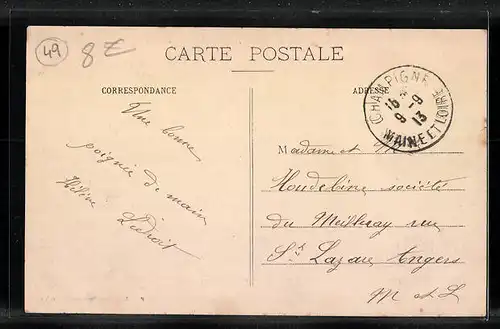 49
8 €
CARTE POSTALE
CORRESPONDANCE
ADRESSE
CHAMPIGNÉ
16 - 9
9 13
MAINE ET LOIRE
Une bonne
poignée de main
Hélène
Ledroit
Madame et M
Houdebine société
du Meilleray rue
St Lazare Angers
M et L